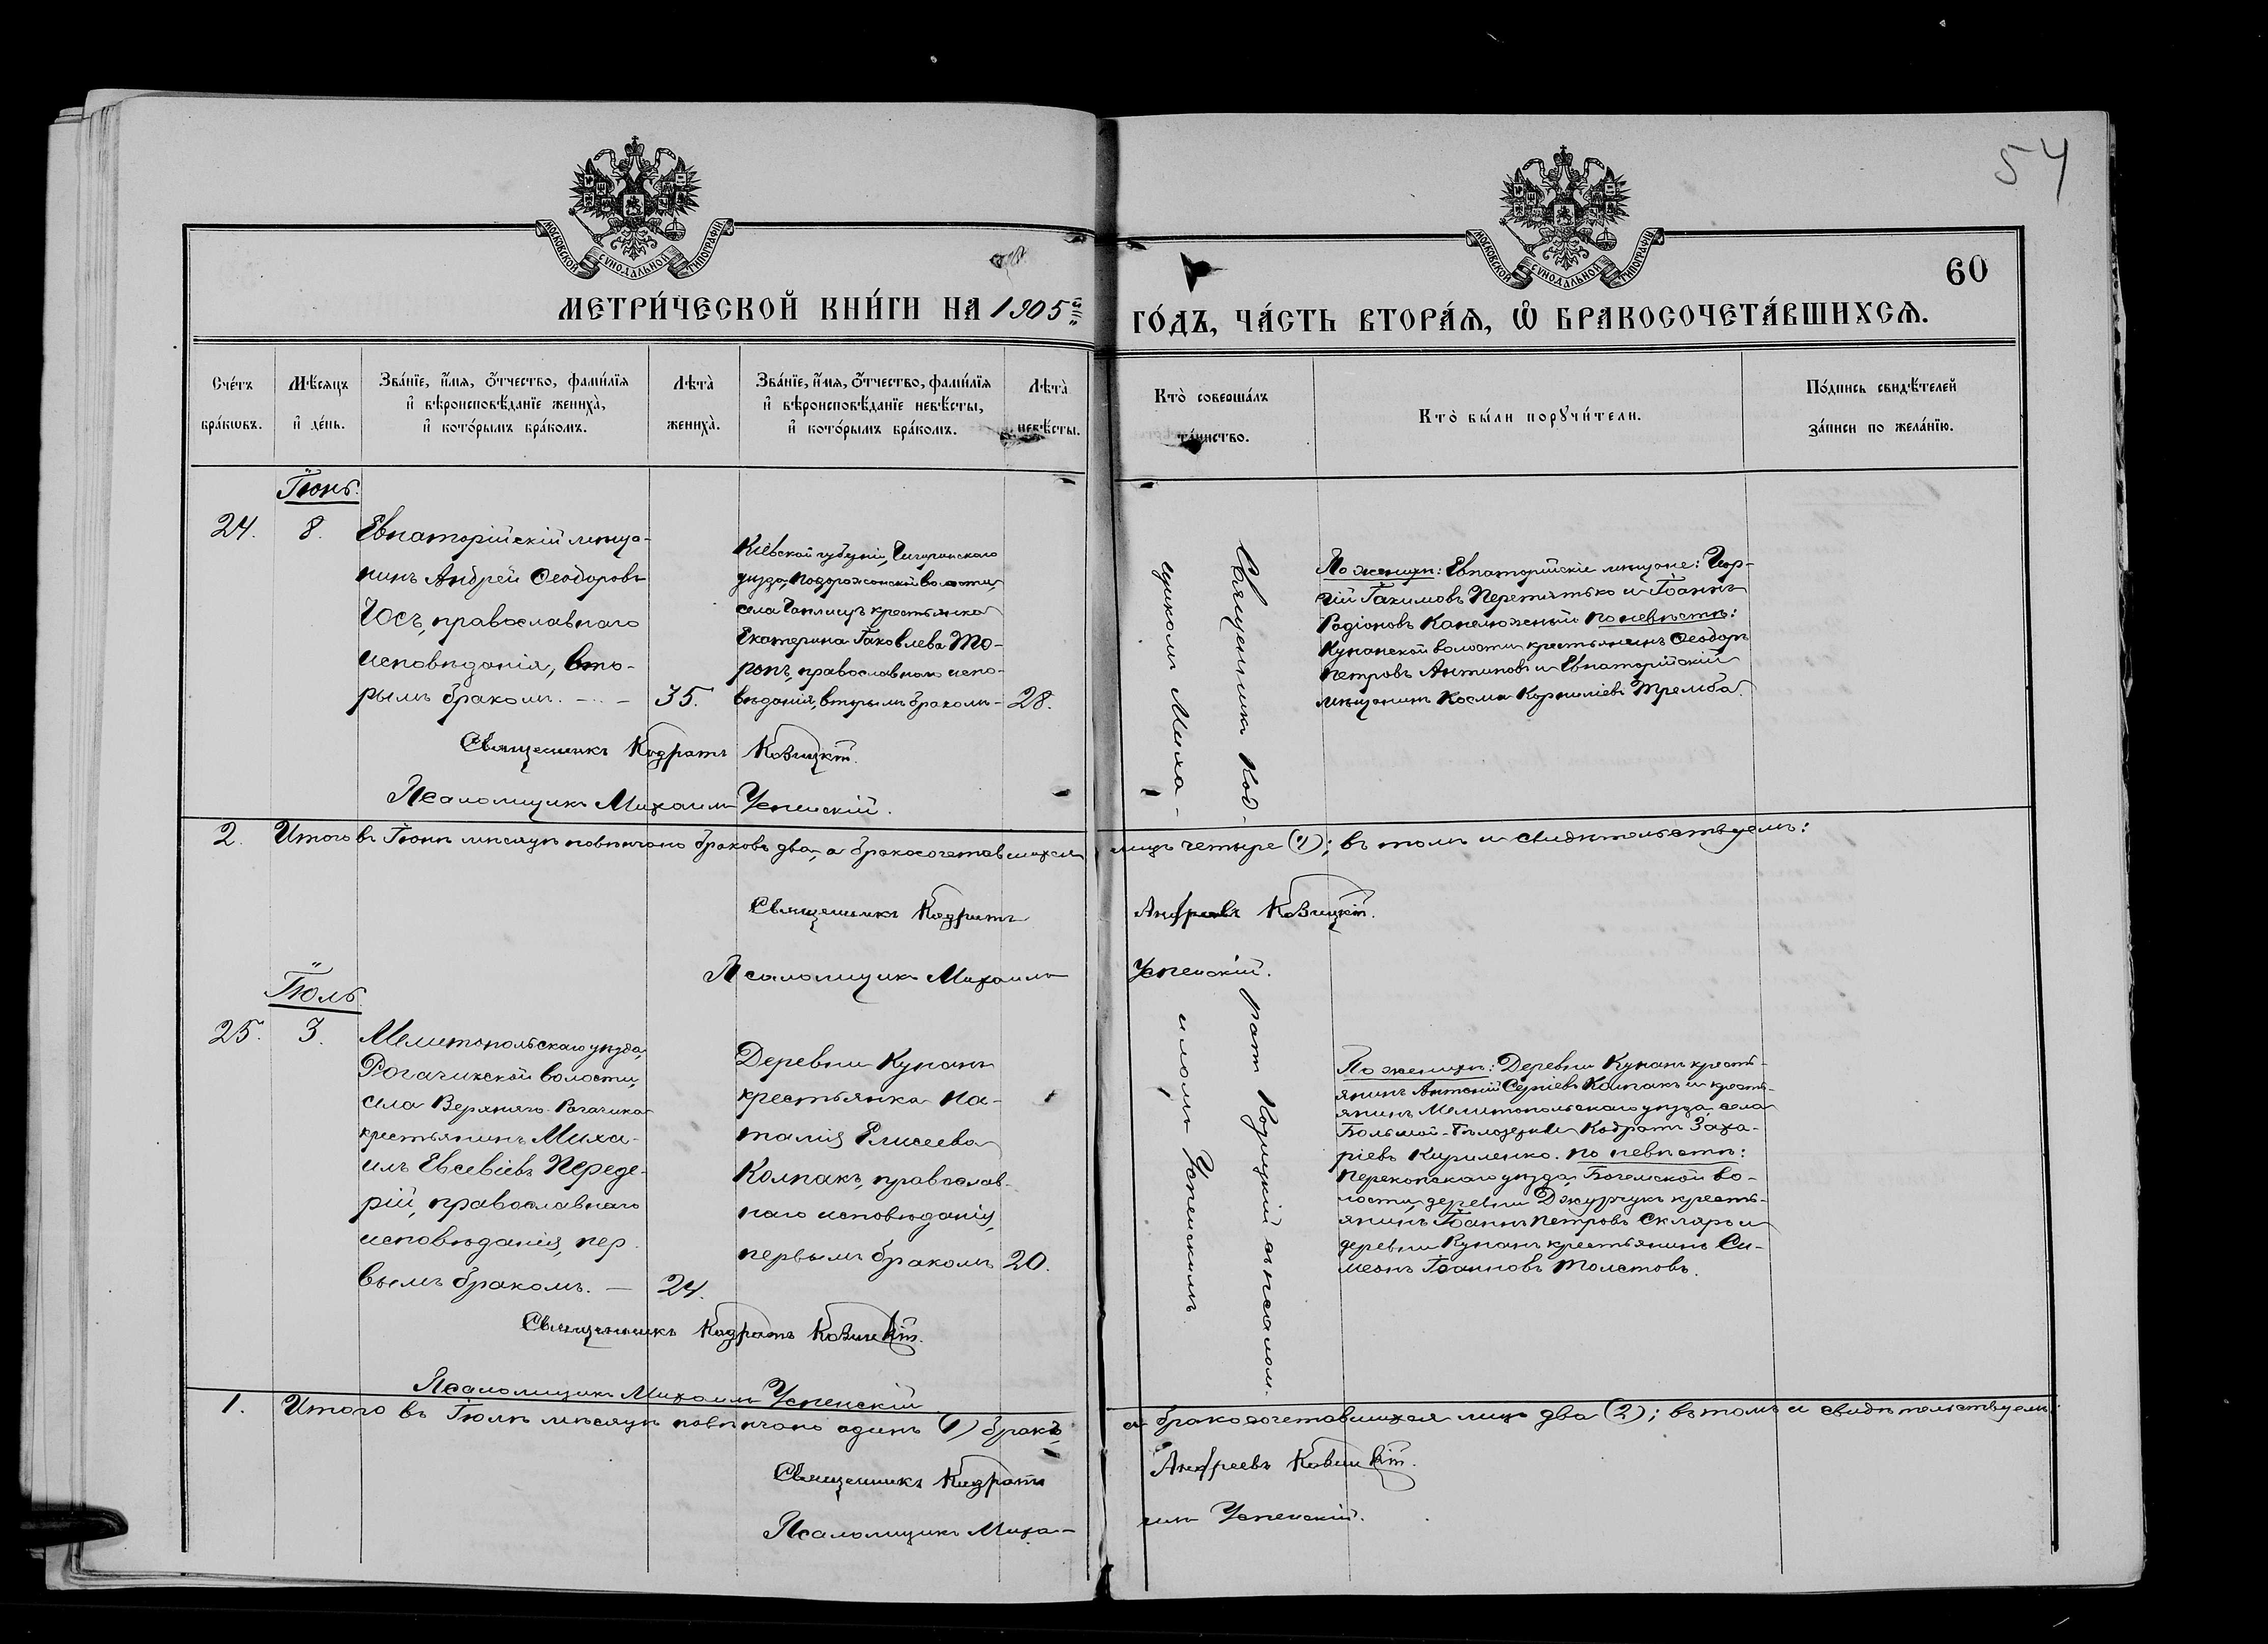 54
МОСКОВСКОЙ СѴНОДАЛЬНОЙ ТИПОГРАФІИ
МОСКОВСКОЙ СѴНОДАЛЬНОЙ ТИПОГРАФІИ
60
МЕТРИ́ЧЕСКОЙ КНИ́ГИ НА 1905й
ГО́ДЪ, ЧА́СТЬ ВТОРА́Ѧ, Ѡ҆ БРАКОСОЧЕТА́ВШИХСѦ.
Сче́тъ
бра́кѡвъ.
Мѣ́сѧцъ
и҆ де́нь.
Зва́нїе, и҆́мѧ, ѻ҆́тчество, фами́лїѧ
и҆ вѣроисповѣ́данїе жениха̀,
и҆ кото́рымъ бра́комъ.
Лѣта̀
жениха̀.
Зва́нїе, и҆́мѧ, ѻ҆́тчество, фами́лїѧ
и҆ вѣроисповѣ́данїе невѣ́сты,
и҆ кото́рымъ бра́комъ.
Лѣта̀
невѣ́сты.
Кто̀ соверша́лъ
та́инство.
Кто̀ бы́ли порꙋчи́тели.
По́дпись свидѣ́телей
за́писи по жела́нїю.
Іюнь.
24.
8.
Евпаторійскій мѣща-
нинъ Андрей Ѳеодоровъ
Юсъ, православнаго
исповѣданія, вто-
рымъ бракомъ. — —
35.
Кіевской губерніи, Чигиринскаго
уѣзда, Подорожанской волости,
села крестьянка
Екатерина Іаковлева То-
ропъ, православнаго испо-
вѣданія, вторымъ бракомъ —
28.
Священникъ Код-
ратъ Ковицкій съ псалом-
щикомъ Миха-
иломъ Успенскимъ.
По женихѣ: Евпаторійскіе мѣщане: Геор-
гій Іакимовъ Перетятько и Іоаннъ
Родіоновъ Канелюжный По невѣстѣ:
Кунанской волости крестьянинъ Ѳеодоръ
Петровъ Антиповъ и Евпаторійскій
мѣщанинъ Косма Корниліевъ Трембa.
Священникъ Кодратъ Ковицкій.
Псаломщикъ Михаилъ Успенскій.
2. Итого въ Іюнѣ мѣсяцѣ повѣнчано браковъ два, а бракосочетавшихся лицъ четыре (4); въ томъ и свидѣтельствуемъ:
Священникъ Кодратъ Андреевъ Ковицкій.
Псаломщикъ Михаилъ Успенскій.
Іюль.
25.
3.
Мелитопольскаго уѣзда,
Рогачикской волости,
села Верхняго-Рогачика
крестьянинъ Миха-
илъ Евсевіевъ Переде-
рій, православнаго
исповѣданія, пер-
вымъ бракомъ. —
24.
Деревни Кунанъ
крестьянка На-
талія Елисеева
Колпакъ, православ-
наго исповѣданія,
первымъ бракомъ
20.
По женихѣ: Деревни Кунанъ кресть-
янинъ Антоній Сергіевъ Колпакъ и кресть-
янинъ Мелитопольскаго уѣзда, села
Большой-Бѣлозерки Кодратъ Заха-
ріевъ Кириленко. По невѣстѣ:
Перекопскаго уѣзда, Богемской во-
лости, деревни Джурчукъ кресть-
янинъ Іоаннъ Петровъ Скляръ и
деревни Кунанъ крестьянинъ Си-
меонъ Іоанновъ Толстовъ.
Священникъ Кодратъ Ковицкій.
Псаломщикъ Михаилъ Успенскій
1. Итого въ Іюлѣ мѣсяцѣ повѣнчано одинъ (1) бракъ, а бракосочетавшихся лицъ два (2); въ томъ и свидѣтельствуемъ:
Священникъ Кодратъ Андреевъ Ковицкій.
Псаломщикъ Миха-
илъ Успенскій.